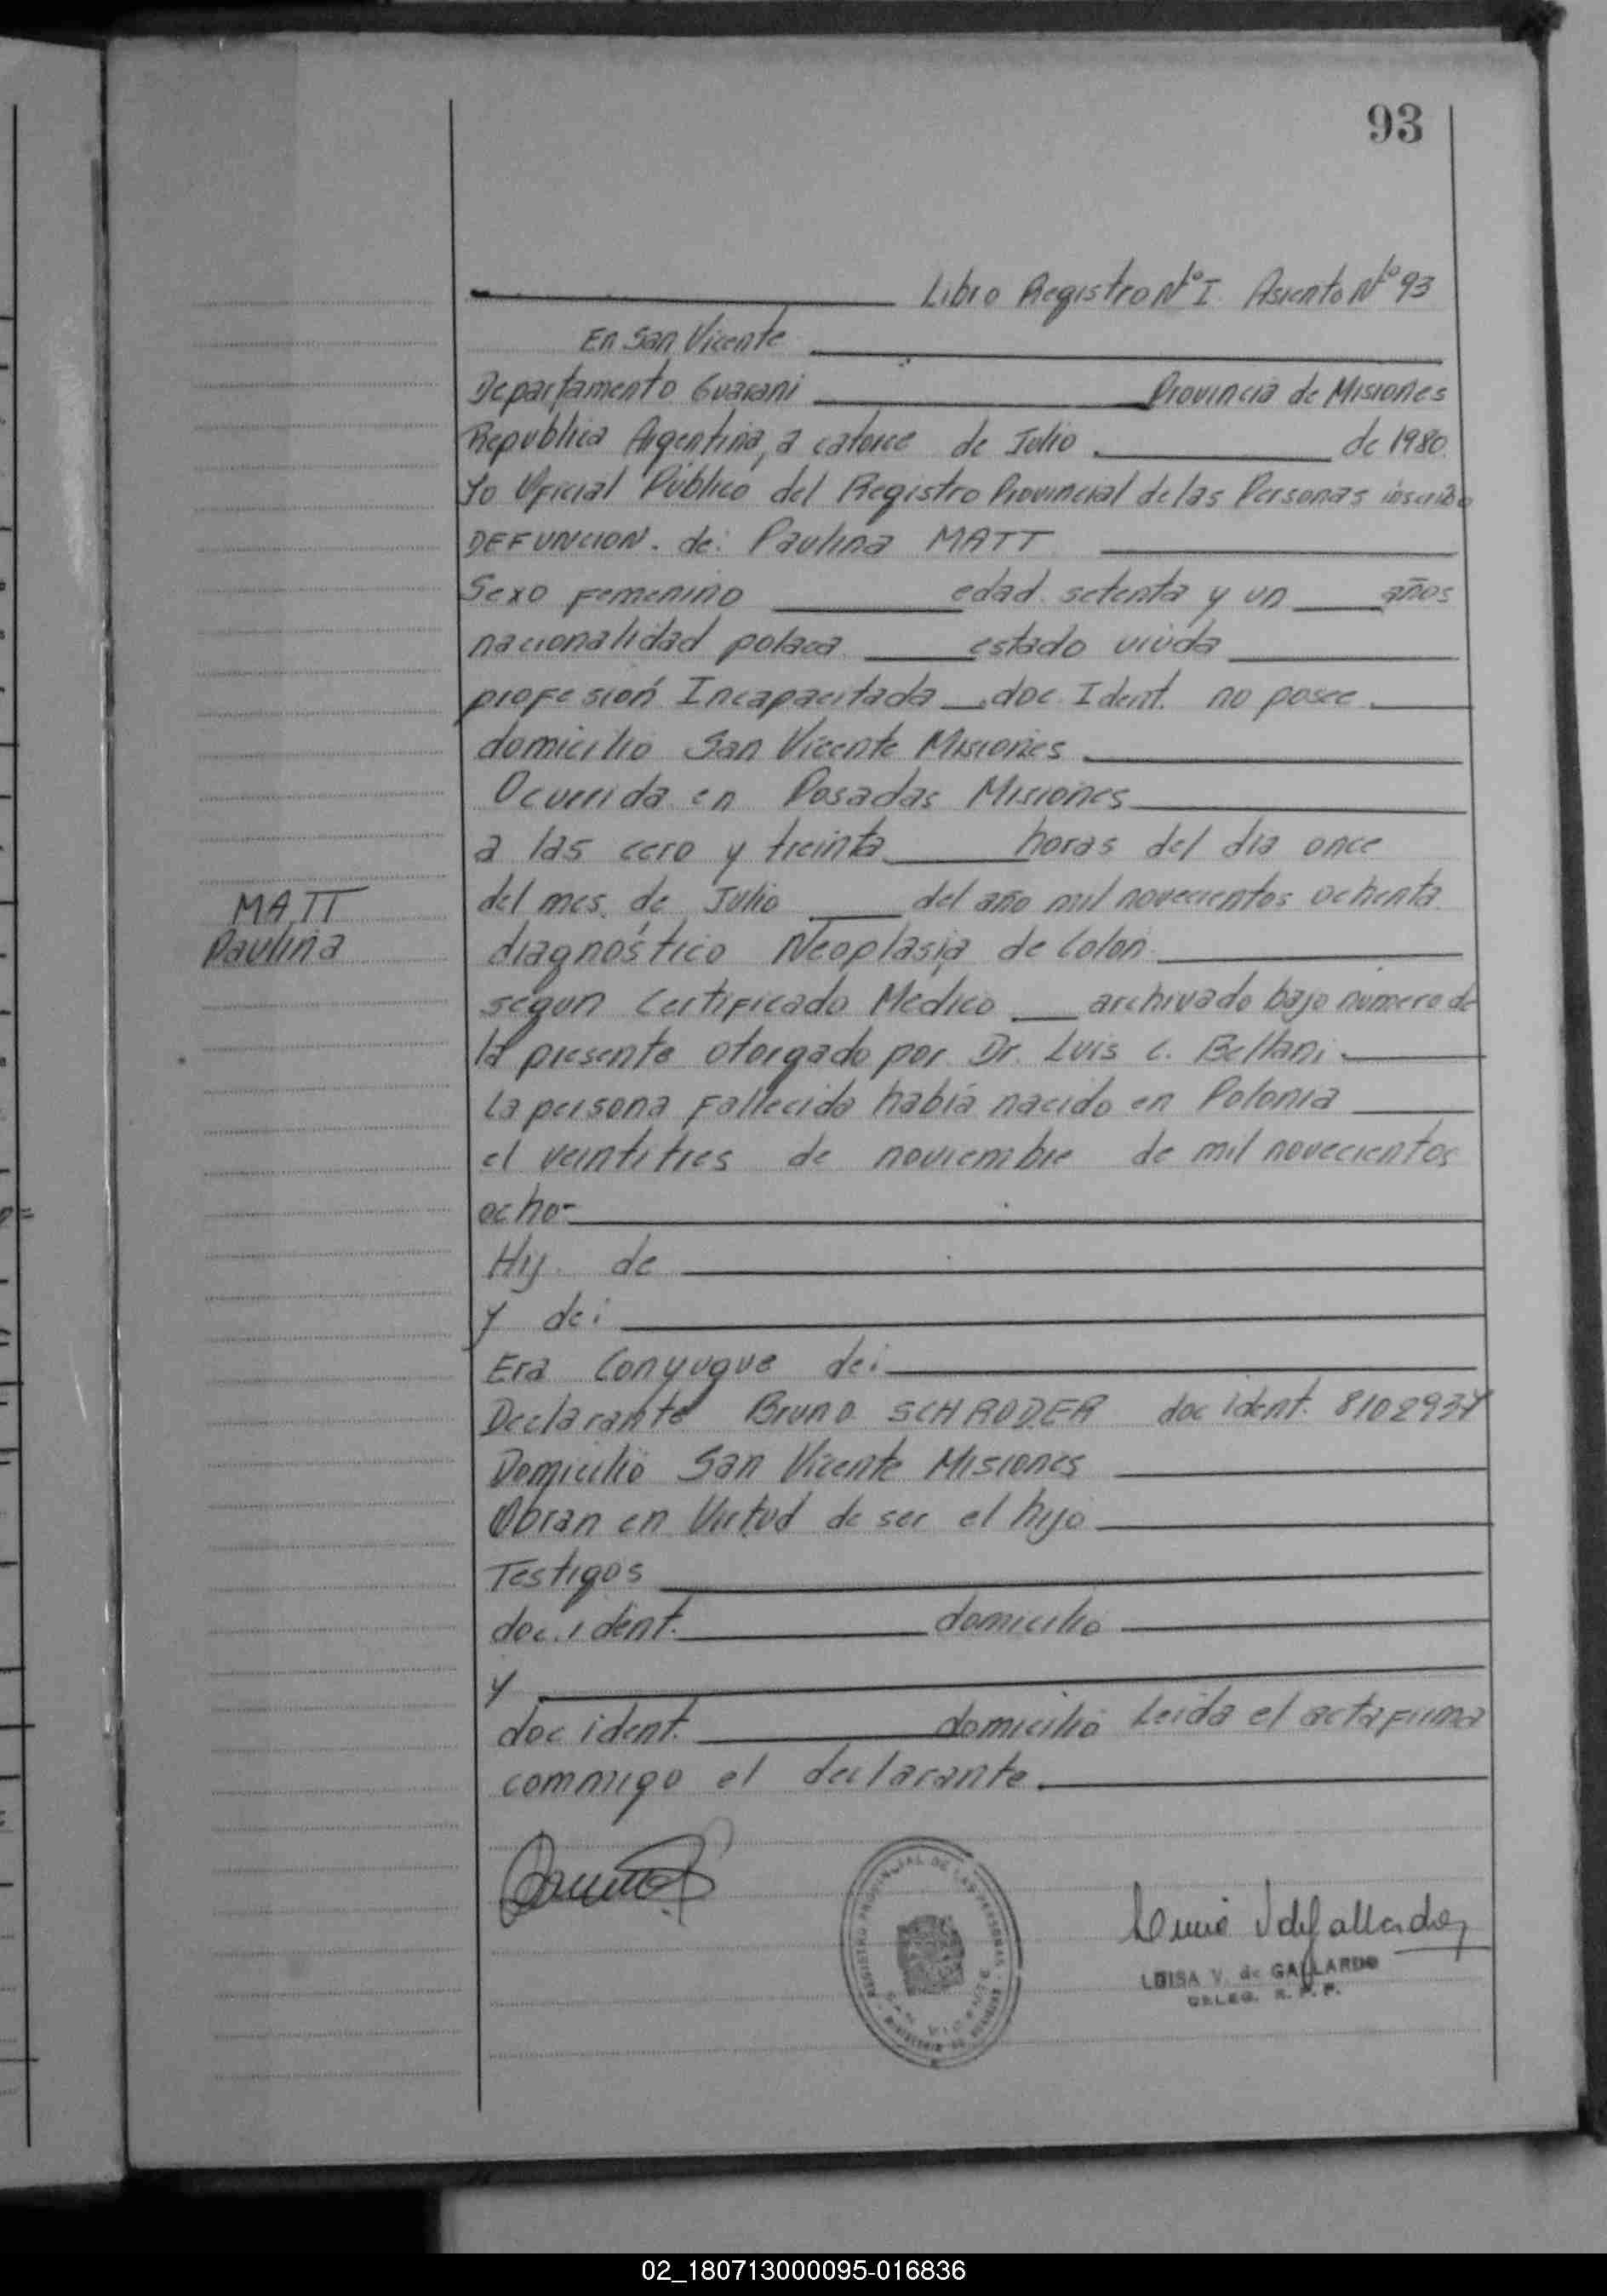 93
Libro Registro Nº I Asiento Nº 93
En San Vicente
Departamento Guarani Provincia de Misiones
Republica Argentina, a catorce de Julio de 1980.
Yo Oficial Público del Registro Provincial de las Personas inscribo
DEFUNCION. de: Paulina MATT
Sexo Femenino edad. setenta y un años
nacionalidad polaca estado viuda
profesión Incapacitada doc. Ident. no posee
domicilio San Vicente Misiones
Ocurrida en Posadas Misiones
a las cero y treinta horas del dia once
del mes de Julio del año mil novecientos ochenta
MATT
Paulina
diagnóstico Neoplasia de Colon
segun Certificado Medico archivado bajo numero de
la presente otorgado por Dr. Luis C. Beltani
La persona Fallecida había nacido en Polonia
el veintitres de noviembre de mil novecientos
ocho-
Hij. de
y de:
Era Conyugue de:
Declarante Bruno SCHRODER doc ident. 8102937
Domicilio San Vicente Misiones
Obran en Virtud de ser el hijo
Testigos
doc. ident. domicilio
y
doc ident. domicilio Leida el acta firma
commigo el declarante.
REGISTRO PROVINCIAL DE LAS PERSONAS
SAN VICENTE
LUISA V. de GALLARDO
DELEG. R. P. P.
02_180713000095-016836